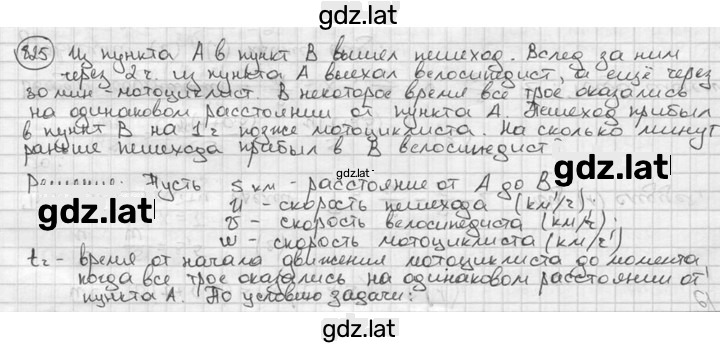 gdz.lat
825 Из пункта А в пункт В вышел пешеход. Вслед за ним
через 2 ч. из пункта А выехал велосипедист, а ещё через
30 мин - мотоциклист. В некоторое время все трое оказались
на одинаковом расстоянии от пункта А. Пешеход прибыл
в пункт В на 1 ч позже мотоциклиста. На сколько минут
раньше пешехода прибыл в В велосипедист
gdz.lat
Пусть s км - расстояние от А до В
gdz.lat
u - скорость пешехода (км/ч);
gdz.lat
v - скорость велосипедиста (км/ч);
w - скорость мотоциклиста (км/ч)
t ч - время от начала движения мотоциклиста до момента
когда все трое оказались на одинаковом расстоянии от
пункта А. По условию задачи:
gdz.lat